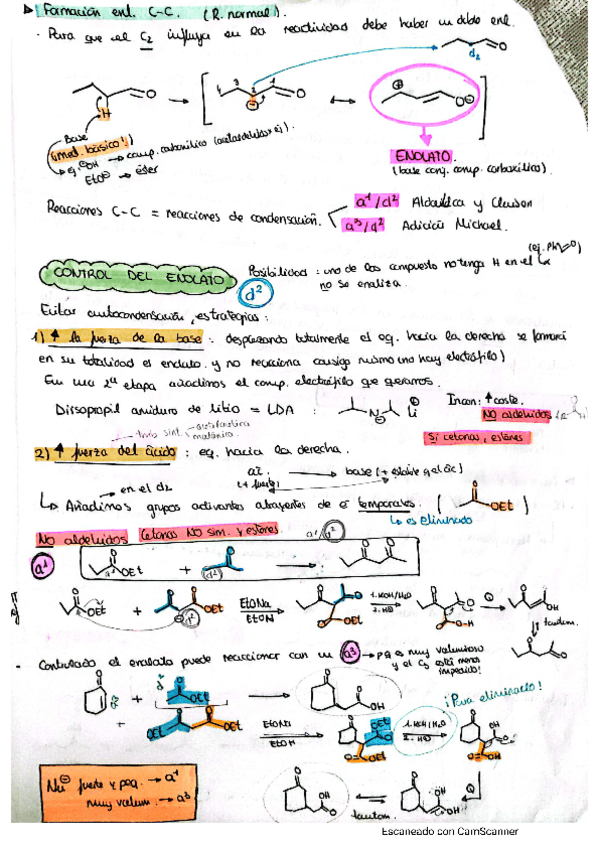 Formación enl. C-C. (R. normal).
· Para que el C2 influya en la reactividad debe haber un doble enl.
d2
4 3 2 1
O
H
Base
(med. básico!)
ej. ⊖OH → comp. carbonílico (acetaldehído ej).
EtO⊖ → éster
ENOLATO.
(base conj. comp. carboxílico).
Reacciones C-C = reacciones de condensación.
a1/d2 Aldólica y Claisen
a3/d2 Adición Michael.
CONTROL DEL ENOLATO
d2
Posibilidad: uno de los compuesto no tenga H en el Cα
no se enaliza.
(ej. Ph O)
Evitar autocondensación, estrategias:
1) ↑ la fuerza de la base: desplazando totalmente el eq. hacia la derecha se formará
en su totalidad es enolato y no reacciona consigo mismo (no hay electrófilo)
En una 2ª etapa añadimos el comp. electrófilo que queramos.
Diisopropil amiduro de litio = LDA : N⊖ Li⊕
Incon: ↑ coste.
NO aldehídos
Sí cetonas, ésteres
2) ↑ fuerza del ácido: eq. hacia la derecha.
en el d2
Añadimos grupos activantes atrayentes de e⁻ temporales. ( OEt )
es eliminado
NO aldehídos Cetonas NO sim. y ésteres.
a1/d2
a1
OEt + d2 →
OEt + OEt EtONa EtOH 1. KOH/H2O 2. HCl
tautom.
· Controlado el enolato puede reaccionar con un a3 → pq es muy voluminoso
y el C3 está menos
impedido!
OEt
OH
+
OEt OEt
EtONa
EtOH
1. KOH/H2O
2. HCl
¡Para eliminarlo!
Nu⊖ fuerte y peq. → a1
muy volum. → a3
tautom.
Escaneado con CamScanner